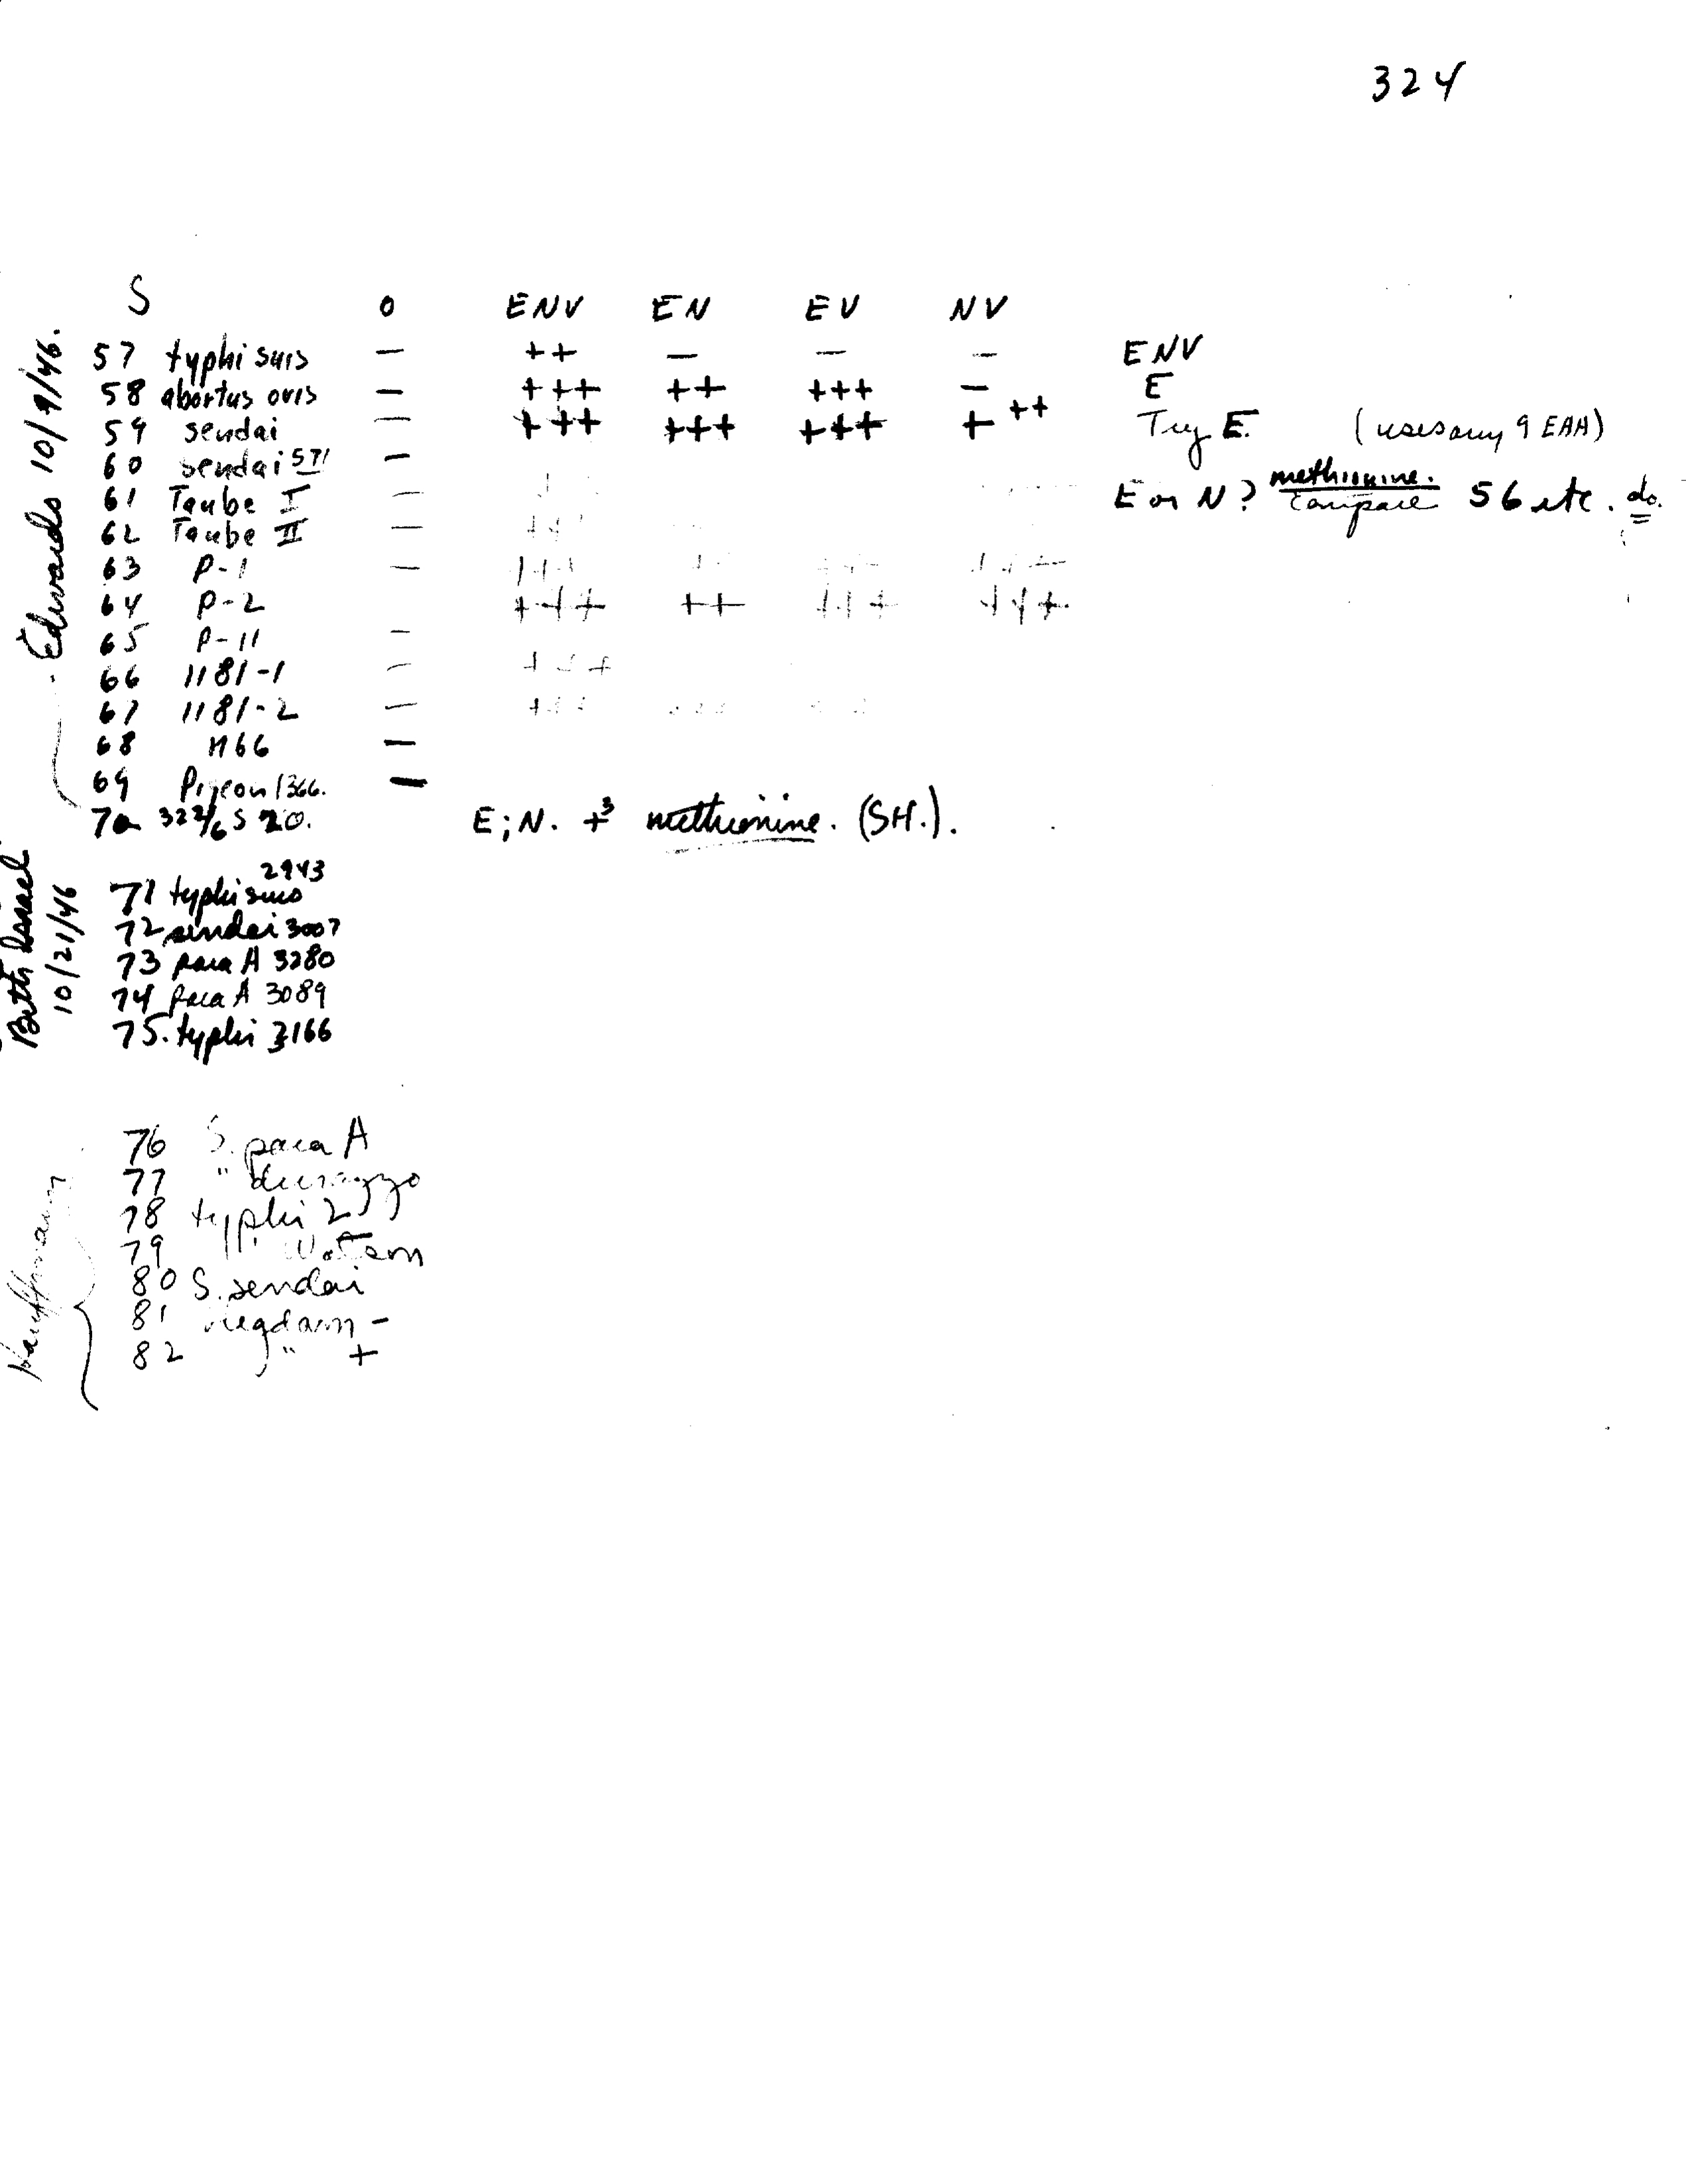 324
S 0 ENV EN EV NV
Edwards 10/9/46.
57 typhi suis — ++ — — — ENV
58 abortus ovis — +++ ++ +++ — E
59 sendai — +++ +++ +++ + ++ Try E. (uses any 9 EAA)
60 sendai 571 —
61 Taube I — E or N? methionine. Compare 56 etc. do.
62 Taube II —
63 P-1 — +++ ++
64 P-2 +++ ++ +++ +++
65 P-11 —
66 1181-1 — +++
67 1181-2 — +++
68 M66 —
69 Pigeon 1366. —
70 S 20. E; N. +3 methionine. (SH.).
Beth Israel
10/21/46
71 typhi suis 2943
72 sendai 3007
73 para A 3280
74 para A 3089
75. typhi 3166
Kauffmann
76 S. para A
77 " durazzo
78 typhi 2
79 " Watson
80 S. sendai
81 -
82 " +